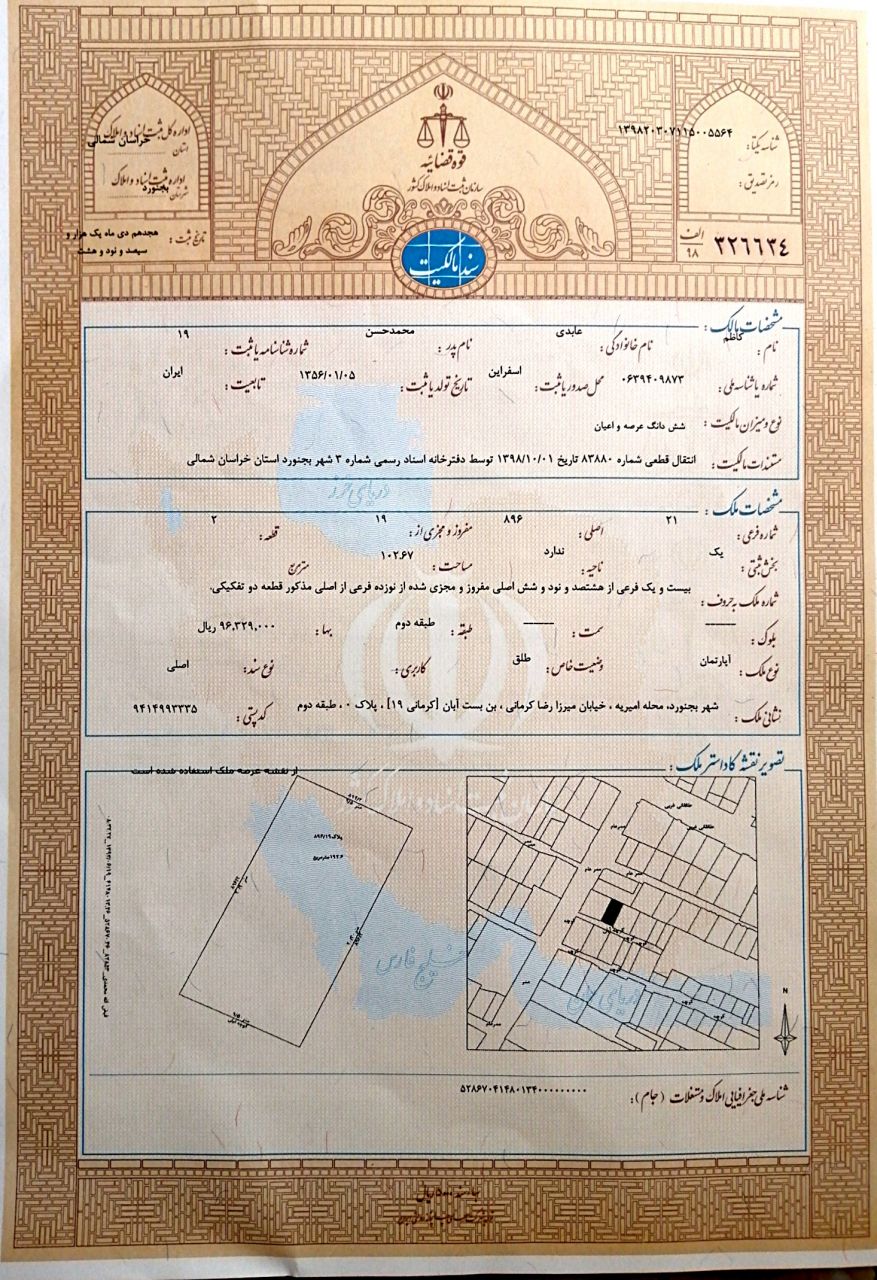 قوه قضائیه
سازمان ثبت اسناد و املاک کشور
سند مالکیت
شناسه یکتا: ۱۳۹۸۲۰۳۰۷۱۱۵۰۰۵۵۶۴
رمز تصدیق:
الف ۹۸ ۳۲۶۶۳۴
اداره کل ثبت اسناد و املاک
استان خراسان شمالی
اداره ثبت اسناد و املاک
شهرستان بجنورد
تاریخ ثبت: هجدهم دی ماه یک هزار و
سیصد و نود و هشت
مشخصات مالک:
نام: کاظم نام خانوادگی: عابدی نام پدر: محمدحسن شماره شناسنامه یا ثبت: ۱۹
شماره یا شناسه ملی: ۰۶۳۹۴۰۹۸۷۳ محل صدور یا ثبت: اسفراین تاریخ تولد یا ثبت: ۱۳۵۶/۰۱/۰۵ تابعیت: ایران
نوع و میزان مالکیت: شش دانگ عرصه و اعیان
مستندات مالکیت: انتقال قطعی شماره ۸۳۸۸۰ تاریخ ۱۳۹۸/۱۰/۰۱ توسط دفترخانه اسناد رسمی شماره ۳ شهر بجنورد استان خراسان شمالی
دریای خزر
مشخصات ملک:
شماره فرعی: ۲۱ اصلی: ۸۹۶ مفروز و مجزی از: ۱۹ قطعه: ۲
بخش ثبتی: یک ناحیه: ندارد مساحت: ۱۰۲.۶۷ مترمربع
شماره ملک به حروف: بیست و یک فرعی از هشتصد و نود و شش اصلی مفروز و مجزی شده از نوزده فرعی از اصلی مذکور قطعه دو تفکیکی.
بلوک: ——— سمت: ——— طبقه: طبقه دوم بها: ۹۶,۳۲۹,۰۰۰ ریال
نوع ملک: آپارتمان وضعیت خاص: طلق کاربری: نوع سند: اصلی
نشانی ملک: شهر بجنورد، محله امیریه ، خیابان میرزا رضا کرمانی ، بن بست آبان [کرمانی ۱۹] ، پلاک ۰ ، طبقه دوم کدپستی: ۹۴۱۴۹۹۳۳۳۵
تصویر نقشه کاداستر ملک:
از نقشه عرصه ملک استفاده شده است
پلاک ۸۹۶/۱۹
خلیج فارس
N
شناسه ملی جغرافیایی املاک و مستغلات (جام): ۵۲۸۶۷۰۴۱۴۸۰۱۳۴۰۰۰۰۰۰۰۰۰